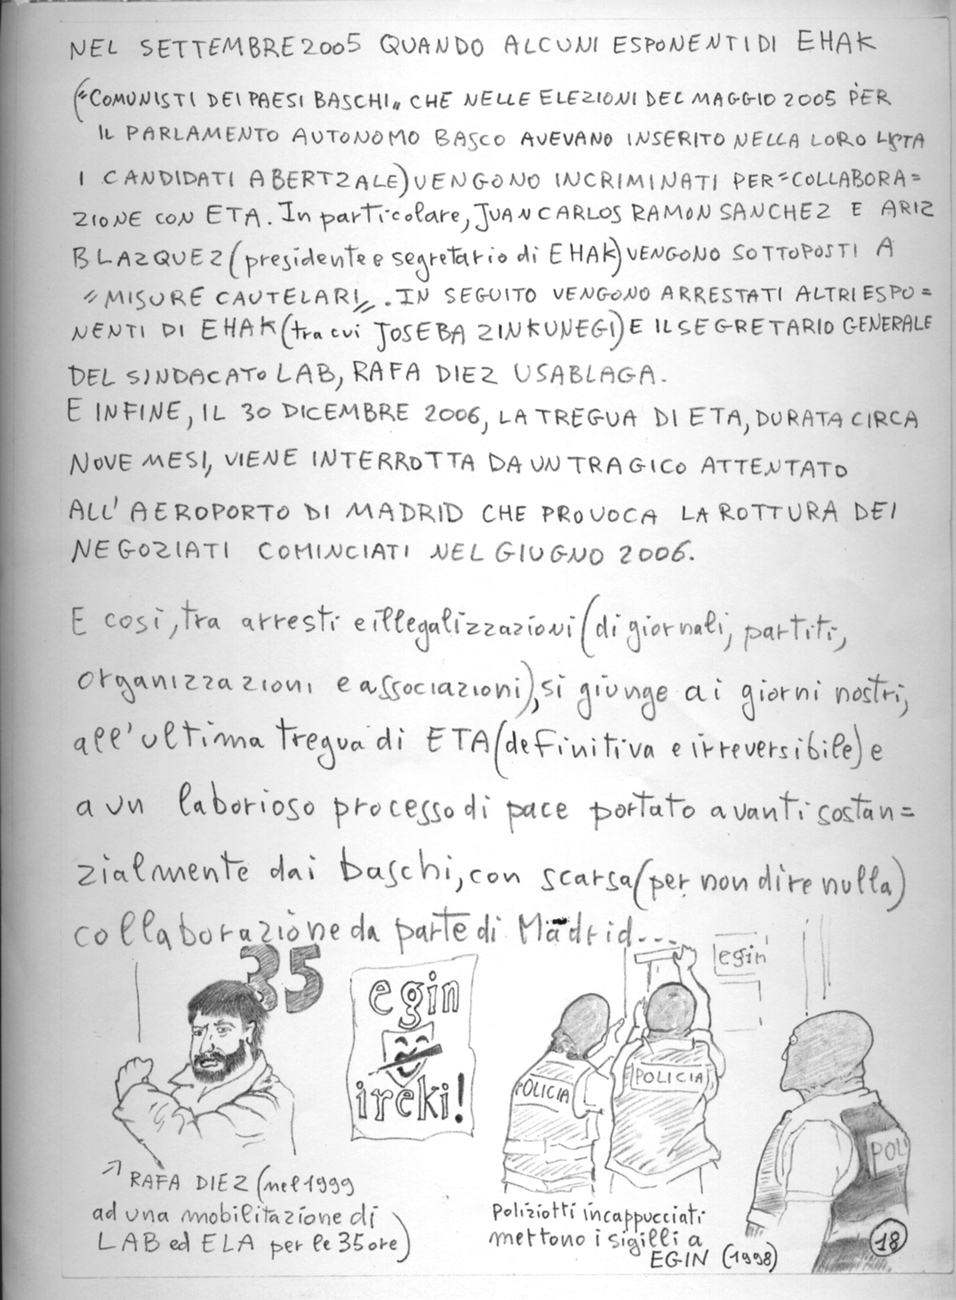 NEL SETTEMBRE 2005 QUANDO ALCUNI ESPONENTI DI EHAK
("COMUNISTI DEI PAESI BASCHI" CHE NELLE ELEZIONI DEL MAGGIO 2005 PER
IL PARLAMENTO AUTONOMO BASCO AVEVANO INSERITO NELLA LORO LISTA
I CANDIDATI ABERTZALE) VENGONO INCRIMINATI PER "COLLABORA=
ZIONE CON ETA. In particolare, JUAN CARLOS RAMON SANCHEZ E ARIZ
BLAZQUEZ (presidente e segretario di EHAK) VENGONO SOTTOPOSTI A
"MISURE CAUTELARI". IN SEGUITO VENGONO ARRESTATI ALTRI ESPO=
NENTI DI EHAK (tra cui JOSEBA ZINKUNEGI) E IL SEGRETARIO GENERALE
DEL SINDACATO LAB, RAFA DIEZ USABLAGA.
E INFINE, IL 30 DICEMBRE 2006, LA TREGUA DI ETA, DURATA CIRCA
NOVE MESI, VIENE INTERROTTA DA UN TRAGICO ATTENTATO
ALL'AEROPORTO DI MADRID CHE PROVOCA LA ROTTURA DEI
NEGOZIATI COMINCIATI NEL GIUGNO 2006.
E così, tra arresti e illegalizzazioni (di giornali, partiti,
organizzazioni e associazioni), si giunge ai giorni nostri,
all'ultima tregua di ETA (definitiva e irreversibile) e
a un laborioso processo di pace portato avanti sostan=
zialmente dai baschi, con scarsa (per non dire nulla)
collaborazione da parte di Madrid...
35
egin
ireki!
egin
POLICIA
POLICIA
POL
RAFA DIEZ (nel 1999
ad una mobilitazione di
LAB ed ELA per le 35 ore)
Poliziotti incappucciati
mettono i sigilli a
EGIN (1998)
18